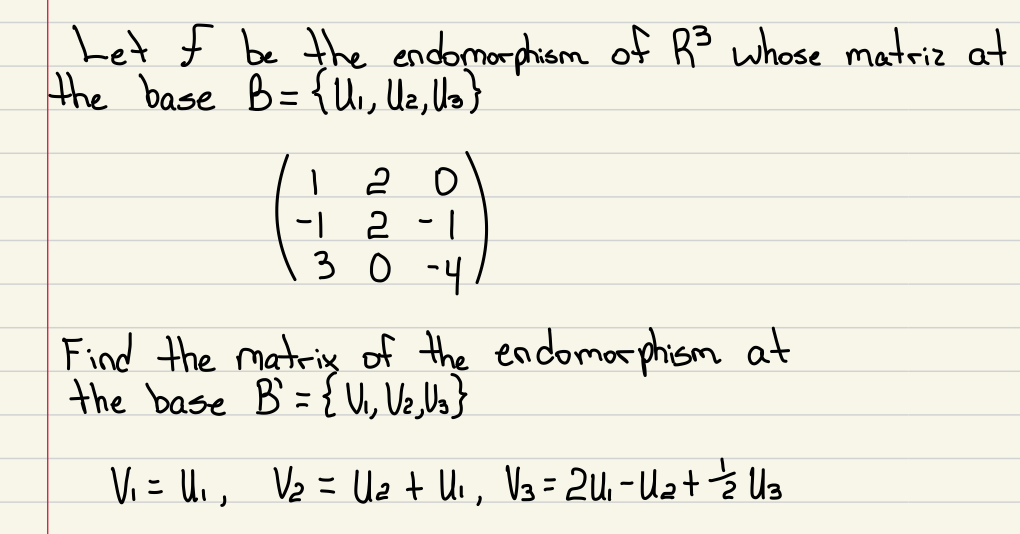 Let f be the endomorphism of R³ whose matriz at
the base B = {U₁, U₂, U₃}
1 2 0
-1 2 -1
3 0 -4
Find the matrix of the endomorphism at
the base B' = {V₁, V₂, V₃}
V₁ = U₁, V₂ = U₂ + U₁, V₃ = 2U₁ - U₂ + ½ U₃